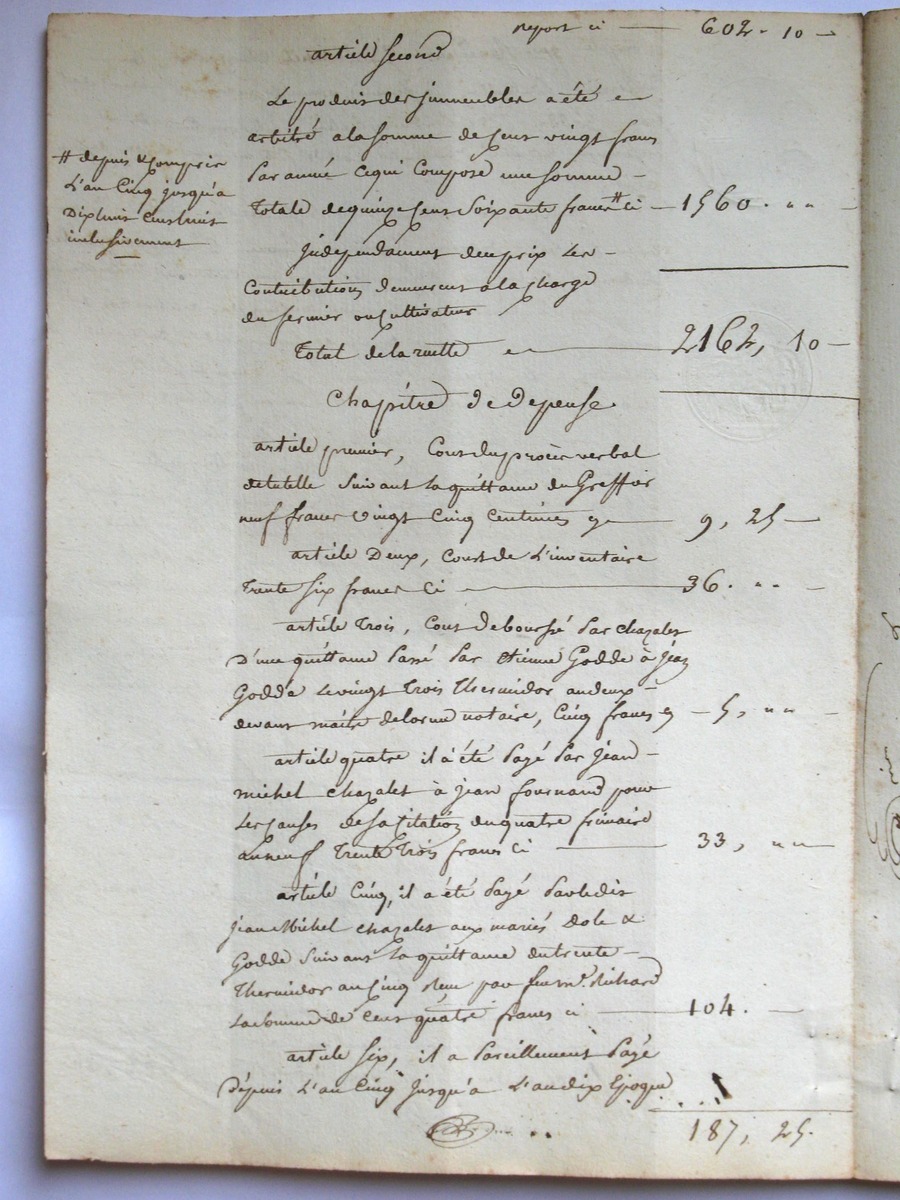 Report ci — 602. 10 —
article second
Le produit des immeubles a été
arbitré a la somme de cent vingt francs
par année ce qui compose une somme —
totale de quinze cent soixante francs # ci — 1560. " "
# depuis & compris
L'an cinq jusqu'a
dix huit cent huit
inclusivement
independament de ce prix les —
contributions demeurent a la charge
du fermier ou cultivateur
Total de la recette — 2162, 10 —
Chapitre de depense
article premier, Cout du procès verbal
de tutelle suivant la quittance du Greffier
neuf francs vingt cinq centimes — 9, 25 —
article Deux, cout de L'inventaire
trente six francs ci — 36. " " —
article trois, Cout deboursé par chazalet
D'une quittance passé par etienne Godde à jean
Godde le vingt trois thermidor an deux —
devant maitre delorme notaire, cinq francs ci — 5, " " —
article quatre il à été payé par jean —
michel chazalet à jean fournand pour
les causes de sa citation du quatre frimaire
an neuf trente trois francs ci — 33, " "
article cinq, il a été payé par le dit
jean Michel chazalet aux mariés dole &
Godde suivant la quittance du trente —
thermidor an cinq reçue par feu mr. Richard
la somme de cent quatre francs ci — 104. —
article six, il a pareillement payé
depuis L'an cinq jusqu'a L'an dix Epoque
187, 25.